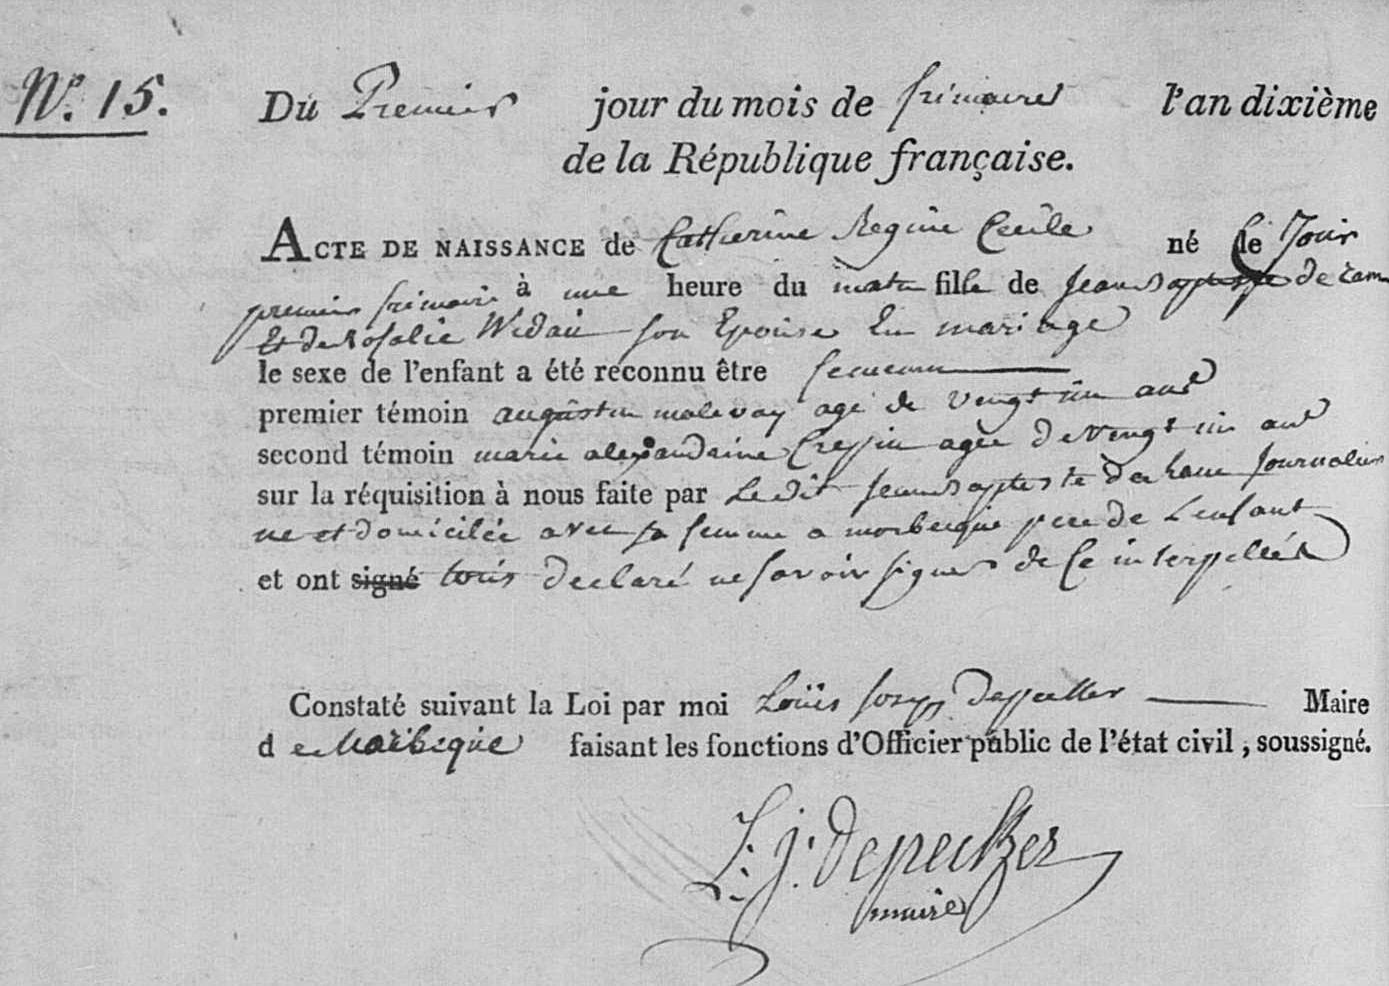 Nº. 15.
Du Premier jour du mois de frimaire l'an dixième
de la République française.
ACTE DE NAISSANCE de Catherine Regine Cecile né le Jour
premier frimaire à une heure du matin fille de Jean Baptiste
Et de Rosalie Widau son Epouse En mariage
le sexe de l'enfant a été reconnu être feminin
premier témoin augustin malevay agé de Vengt un ans
second témoin marie alexandrine Crespin agée de Vengt un ans
sur la réquisition à nous faite par Le dit Jean Baptiste Journalier
ne et domicilée avec sa femme a morbecque pere de L'enfant
et ont signé tous declaré ne savoir signer de Ce interpellés
Constaté suivant la Loi par moi Louis Joseph Maire
d e Morbecque faisant les fonctions d'Officier public de l'état civil, soussigné.
L. j. depeckker
maire